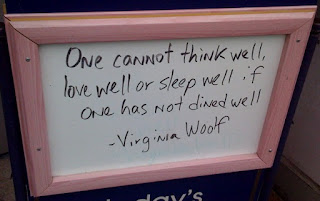 One cannot think well,
love well or sleep well if
one has not dined well
-Virginia Woolf
day's